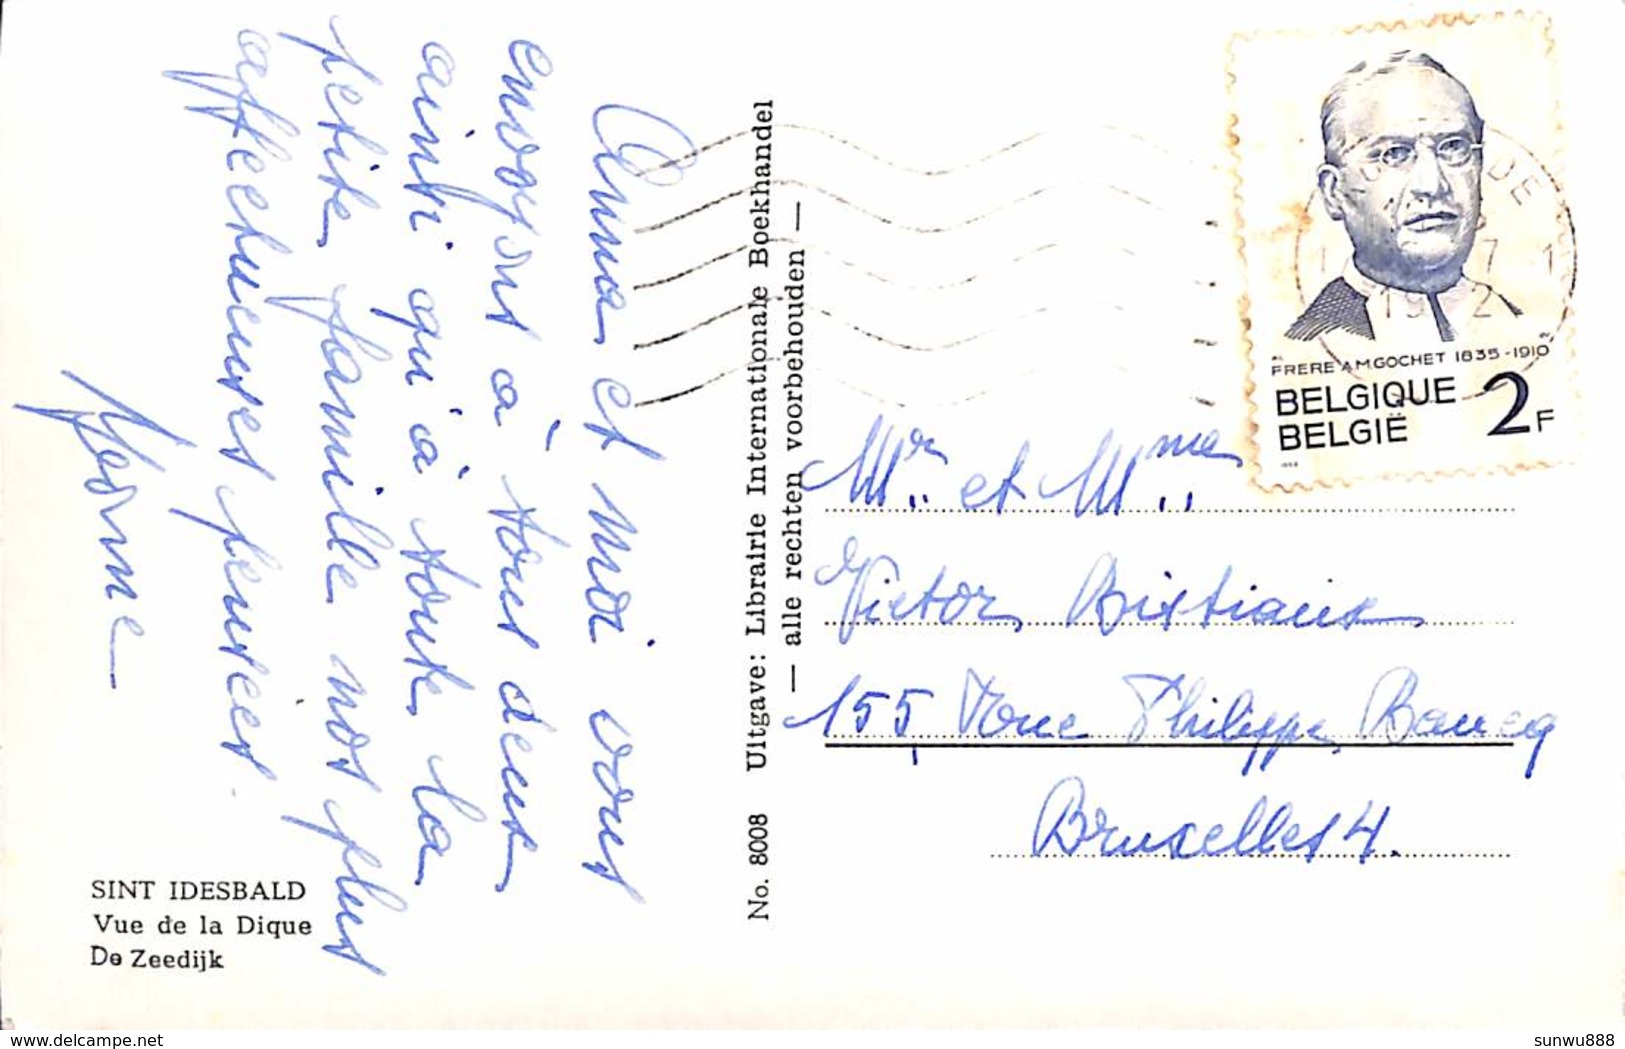 Anna et moi vous
envoyons à tous deux
ainsi qu'à toute la
petite famille nos plus
affectueuses pensées.
SINT IDESBALD
Vue de la Dique
De Zeedijk
No. 8008 Uitgave: Librairie Internationale Boekhandel
— alle rechten voorbehouden —
FRERE A.M.GOCHET 1835-1910
BELGIQUE
BELGIË
2F
Mr. et Mme.
Victor Bistiaux
155 rue Philippe Baucq
Bruxelles 4.
sunwu888